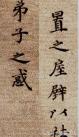 置之座辟以杜
弟子之惑